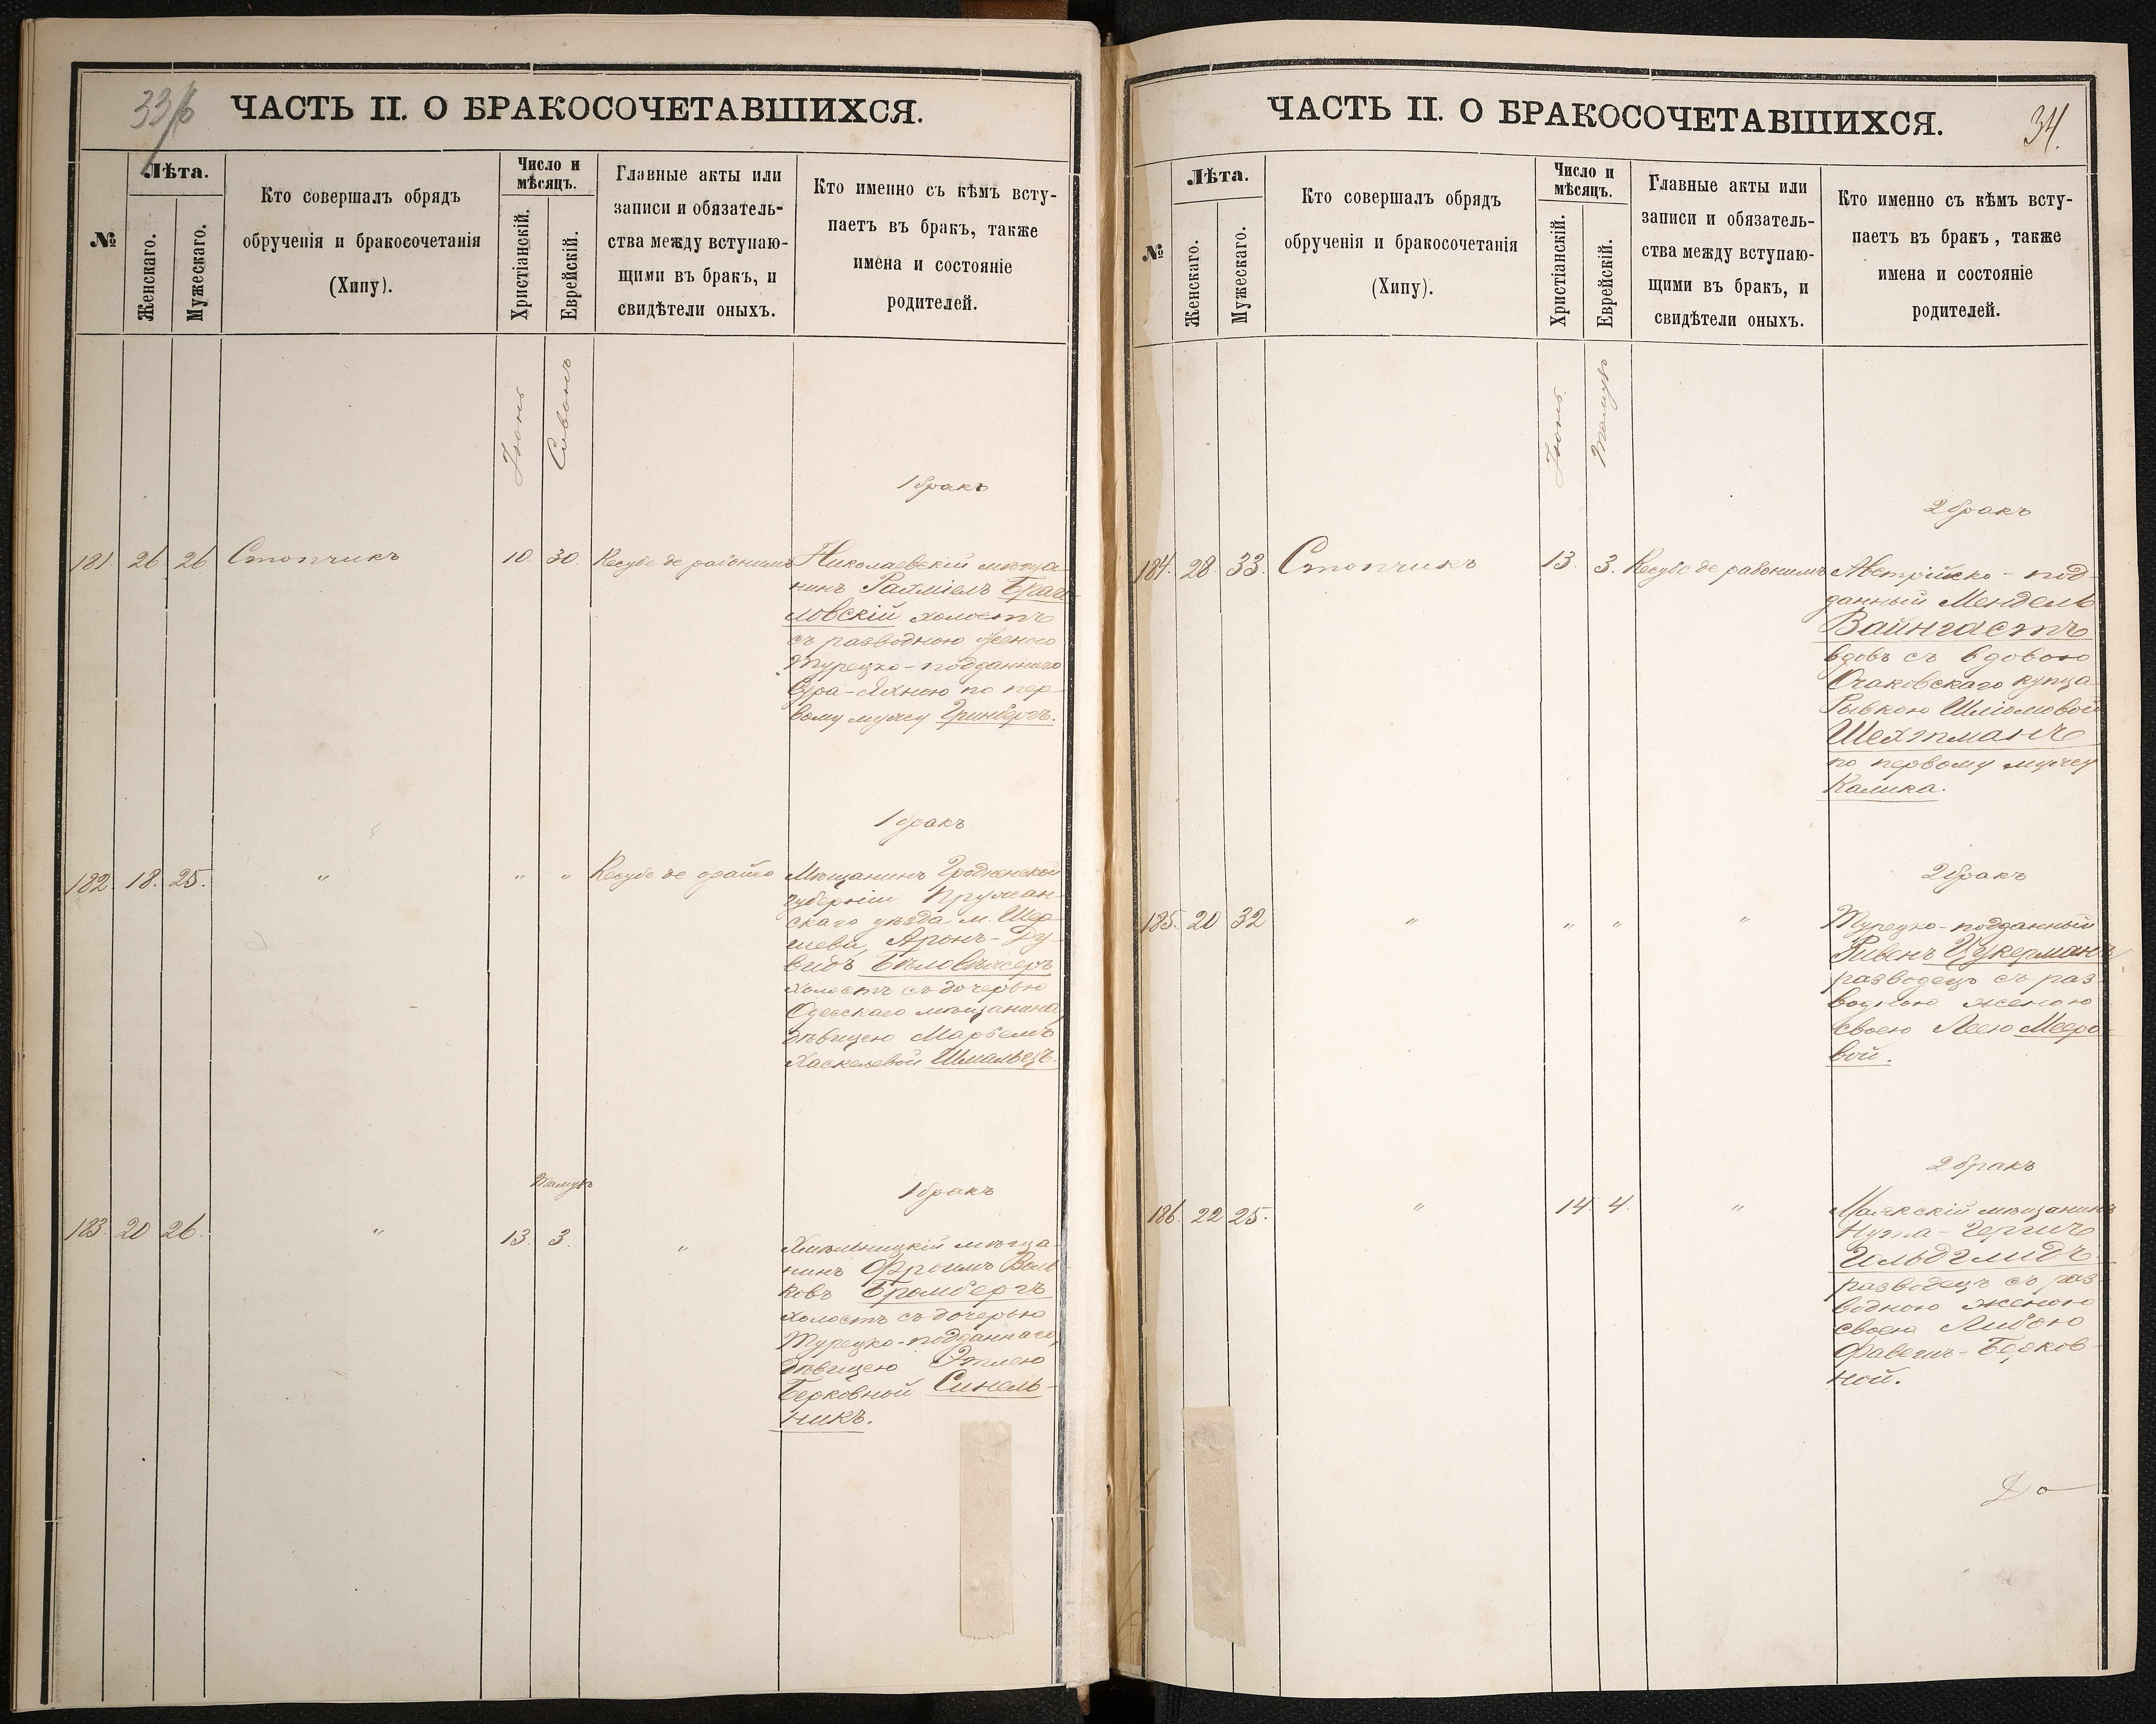 33/6
ЧАСТЬ II. О БРАКОСОЧЕТАВШИХСЯ.
№
Лѣта.
Женскаго.
Мужескаго.
Кто совершалъ обрядъ
обрученія и бракосочетанія
(Хипу).
Число и
мѣсяцъ.
Христіанскій.
Еврейскій.
Главные акты или
записи и обязатель-
ства между вступаю-
щими въ бракъ, и
свидѣтели оныхъ.
Кто именно съ кѣмъ всту-
паетъ въ бракъ, также
имена и состояніе
родителей.
Іюнь
Сивонъ
1 бракъ
181 26 26 Стопчикъ 10. 30. Кесубе де
Николаевскій мѣща-
нинъ Рахміелъ
ловскій холостъ
съ разводною женою
Турецко-подданнаго
Сура-Яхною по пер-
вому мужу Гринбергъ.
1 бракъ
182. 18. 25. " " " Кесубе де орайсо
Мѣщанинъ Гродненской
губерніи Пружан-
скаго уѣзда м. Шер-
шева, Аронъ-Ду-
видъ Бѣловѣжеръ
холостъ съ дочерью
Одесскаго мѣщанина,
дѣвицею Марьемъ
Хаскелевой Шмальцъ.
Тамузъ
1 бракъ
183. 20 26. " 13. 3. "
Хмѣльницкій мѣща-
нинъ Фроимъ Воль-
ковъ Бромбергъ
холостъ съ дочерью
Турецко-подданнаго,
дѣвицею Этлею
Берковной Синель-
никъ.
34.
ЧАСТЬ II. О БРАКОСОЧЕТАВШИХСЯ.
№
Лѣта.
Женскаго.
Мужескаго.
Кто совершалъ обрядъ
обрученія и бракосочетанія
(Хипу).
Число и
мѣсяцъ.
Христіанскій.
Еврейскій.
Главные акты или
записи и обязатель-
ства между вступаю-
щими въ бракъ, и
свидѣтели оныхъ.
Кто именно съ кѣмъ всту-
паетъ въ бракъ, также
имена и состояніе
родителей.
Іюнь.
Тамузъ
2 бракъ
184. 28. 33. Стопчикъ 13. 3. Кесубе де рабонимъ
Австрійско-под-
данный Мендель
Вайнгастъ
вдовъ съ вдовою
Очаковскаго купца
Рывкою Шліомовой
Шехтманъ
по первому мужу
Калика.
2 бракъ
185. 20 32 " " " "
Турецко-подданный
Ривенъ Цукерманъ
разводецъ съ раз-
водною женою
своею Леею Мееро-
вой.
2 бракъ
186. 22 25. " 14. 4. "
Маякскій мѣщанинъ
Нута-Гершъ
Гольдшмидъ
разводецъ съ раз-
водною женою
своею Либою
Берков-
ной.